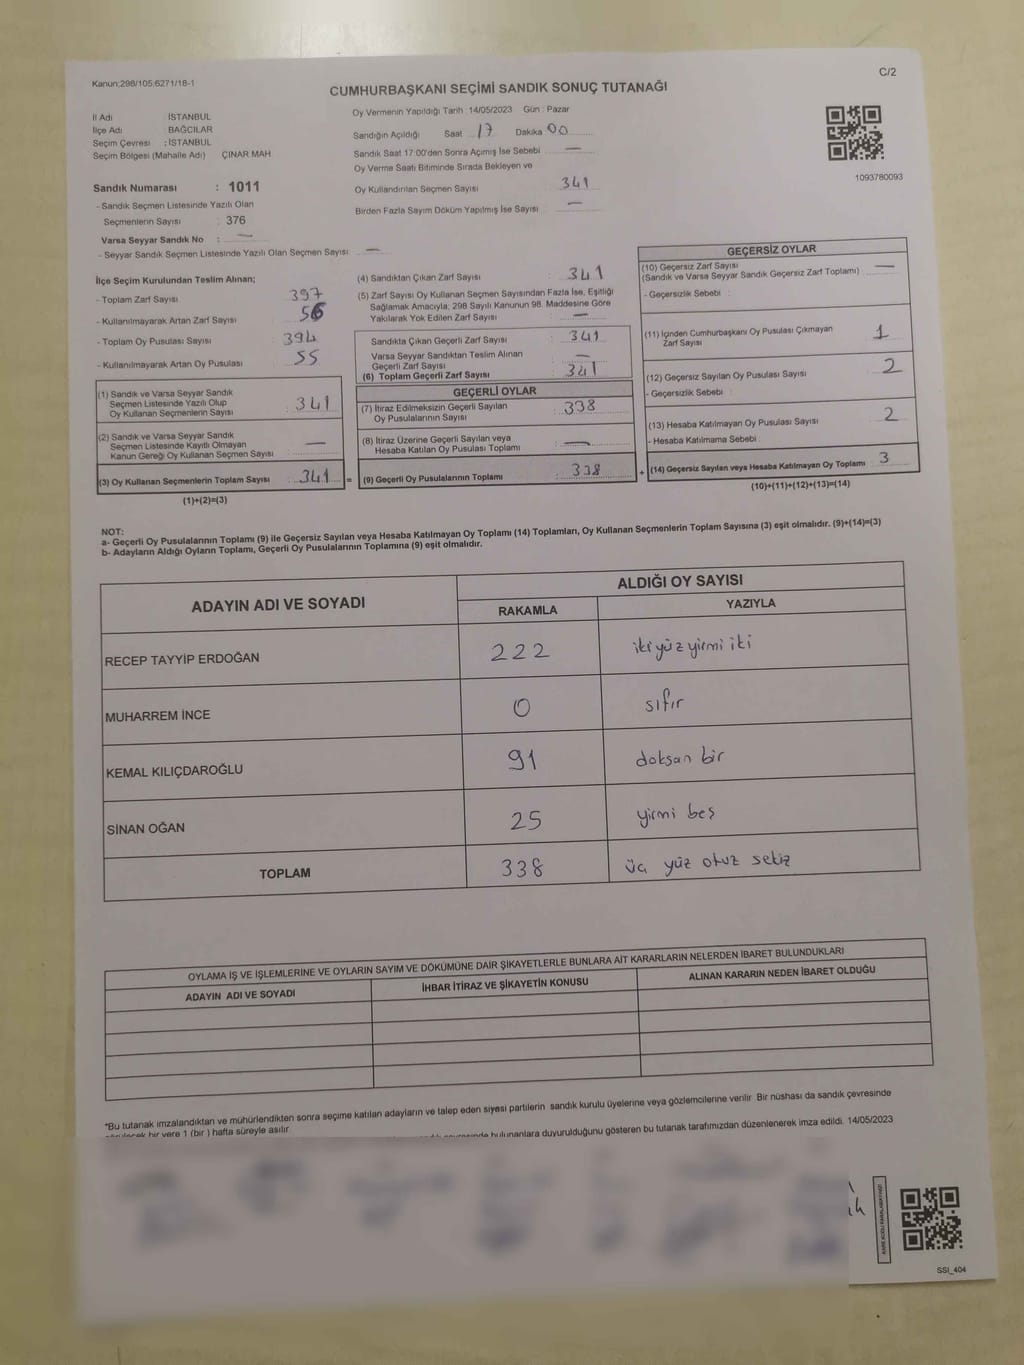 Kanun:298/105,6271/18-1
C/2
CUMHURBAŞKANI SEÇİMİ SANDIK SONUÇ TUTANAĞI
İl Adı İSTANBUL
İlçe Adı : BAĞCILAR
Seçim Çevresi : İSTANBUL
Seçim Bölgesi (Mahalle Adı) ÇINAR MAH
Sandık Numarası : 1011
- Sandık Seçmen Listesinde Yazılı Olan
Seçmenlerin Sayısı : 376
Varsa Seyyar Sandık No : —
- Seyyar Sandık Seçmen Listesinde Yazılı Olan Seçmen Sayısı —
Oy Vermenin Yapıldığı Tarih :14/05/2023 Gün : Pazar
Sandığın Açıldığı Saat 17 Dakika 00
Sandık Saat 17:00'den Sonra Açılmış İse Sebebi —
Oy Verme Saati Bitiminde Sırada Bekleyen ve
Oy Kullandırılan Seçmen Sayısı : 341
Birden Fazla Sayım Döküm Yapılmış İse Sayısı —
1093780093
İlçe Seçim Kurulundan Teslim Alınan;
- Toplam Zarf Sayısı 397
- Kullanılmayarak Artan Zarf Sayısı 56
- Toplam Oy Pusulası Sayısı 394
- Kullanılmayarak Artan Oy Pusulası 55
(1) Sandık ve Varsa Seyyar Sandık
Seçmen Listesinde Yazılı Olup
Oy Kullanan Seçmenlerin Sayısı : 341
(2) Sandık ve Varsa Seyyar Sandık
Seçmen Listesinde Kayıtlı Olmayan
Kanun Gereği Oy Kullanan Seçmen Sayısı —
(3) Oy Kullanan Seçmenlerin Toplam Sayısı : 341 =
(1)+(2)=(3)
(4) Sandıktan Çıkan Zarf Sayısı : 341
(5) Zarf Sayısı Oy Kullanan Seçmen Sayısından Fazla İse, Eşitliği
Sağlamak Amacıyla; 298 Sayılı Kanunun 98. Maddesine Göre
Yakılarak Yok Edilen Zarf Sayısı : —
Sandıkta Çıkan Geçerli Zarf Sayısı : 341
Varsa Seyyar Sandıktan Teslim Alınan
Geçerli Zarf Sayısı —
(6) Toplam Geçerli Zarf Sayısı : 341
GEÇERLİ OYLAR
(7) İtiraz Edilmeksizin Geçerli Sayılan
Oy Pusulalarının Sayısı : 338
(8) İtiraz Üzerine Geçerli Sayılan veya
Hesaba Katılan Oy Pusulası Toplamı : —
(9) Geçerli Oy Pusulalarının Toplamı : 338 +
GEÇERSİZ OYLAR
(10) Geçersiz Zarf Sayısı
(Sandık ve Varsa Seyyar Sandık Geçersiz Zarf Toplamı) —
- Geçersizlik Sebebi :
(11) İçinden Cumhurbaşkanı Oy Pusulası Çıkmayan
Zarf Sayısı 1
(12) Geçersiz Sayılan Oy Pusulası Sayısı 2
- Geçersizlik Sebebi :
(13) Hesaba Katılmayan Oy Pusulası Sayısı 2
- Hesaba Katılmama Sebebi :
(14) Geçersiz Sayılan veya Hesaba Katılmayan Oy Toplamı 3
(10)+(11)+(12)+(13)=(14)
NOT:
a- Geçerli Oy Pusulalarının Toplamı (9) ile Geçersiz Sayılan veya Hesaba Katılmayan Oy Toplamı (14) Toplamları, Oy Kullanan Seçmenlerin Toplam Sayısına (3) eşit olmalıdır. (9)+(14)=(3)
b- Adayların Aldığı Oyların Toplamı, Geçerli Oy Pusulalarının Toplamına (9) eşit olmalıdır.
ADAYIN ADI VE SOYADI ALDIĞI OY SAYISI
RAKAMLA YAZIYLA
RECEP TAYYİP ERDOĞAN 222 iki yüz yirmi iki
MUHARREM İNCE 0 sıfır
KEMAL KILIÇDAROĞLU 91 doksan bir
SİNAN OĞAN 25 yirmi beş
TOPLAM 338 üç yüz otuz sekiz
OYLAMA İŞ VE İŞLEMLERİNE VE OYLARIN SAYIM VE DÖKÜMÜNE DAİR ŞİKAYETLERLE BUNLARA AİT KARARLARIN NELERDEN İBARET BULUNDUKLARI
ADAYIN ADI VE SOYADI İHBAR İTİRAZ VE ŞİKAYETİN KONUSU ALINAN KARARIN NEDEN İBARET OLDUĞU
*Bu tutanak imzalandıktan ve mühürlendikten sonra seçime katılan adayların ve talep eden siyasi partilerin sandık kurulu üyelerine veya gözlemcilerine verilir Bir nüshası da sandık çevresinde
bir yere 1 (bir ) hafta süreyle asılır. bulunanlara duyurulduğunu gösteren bu tutanak tarafımızdan düzenlenerek imza edildi. 14/05/2023
SSI_404